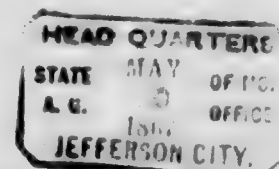 HEAD QUARTERS
STATE MAY OF MO.
A. G. OFFICE
JEFFERSON CITY.